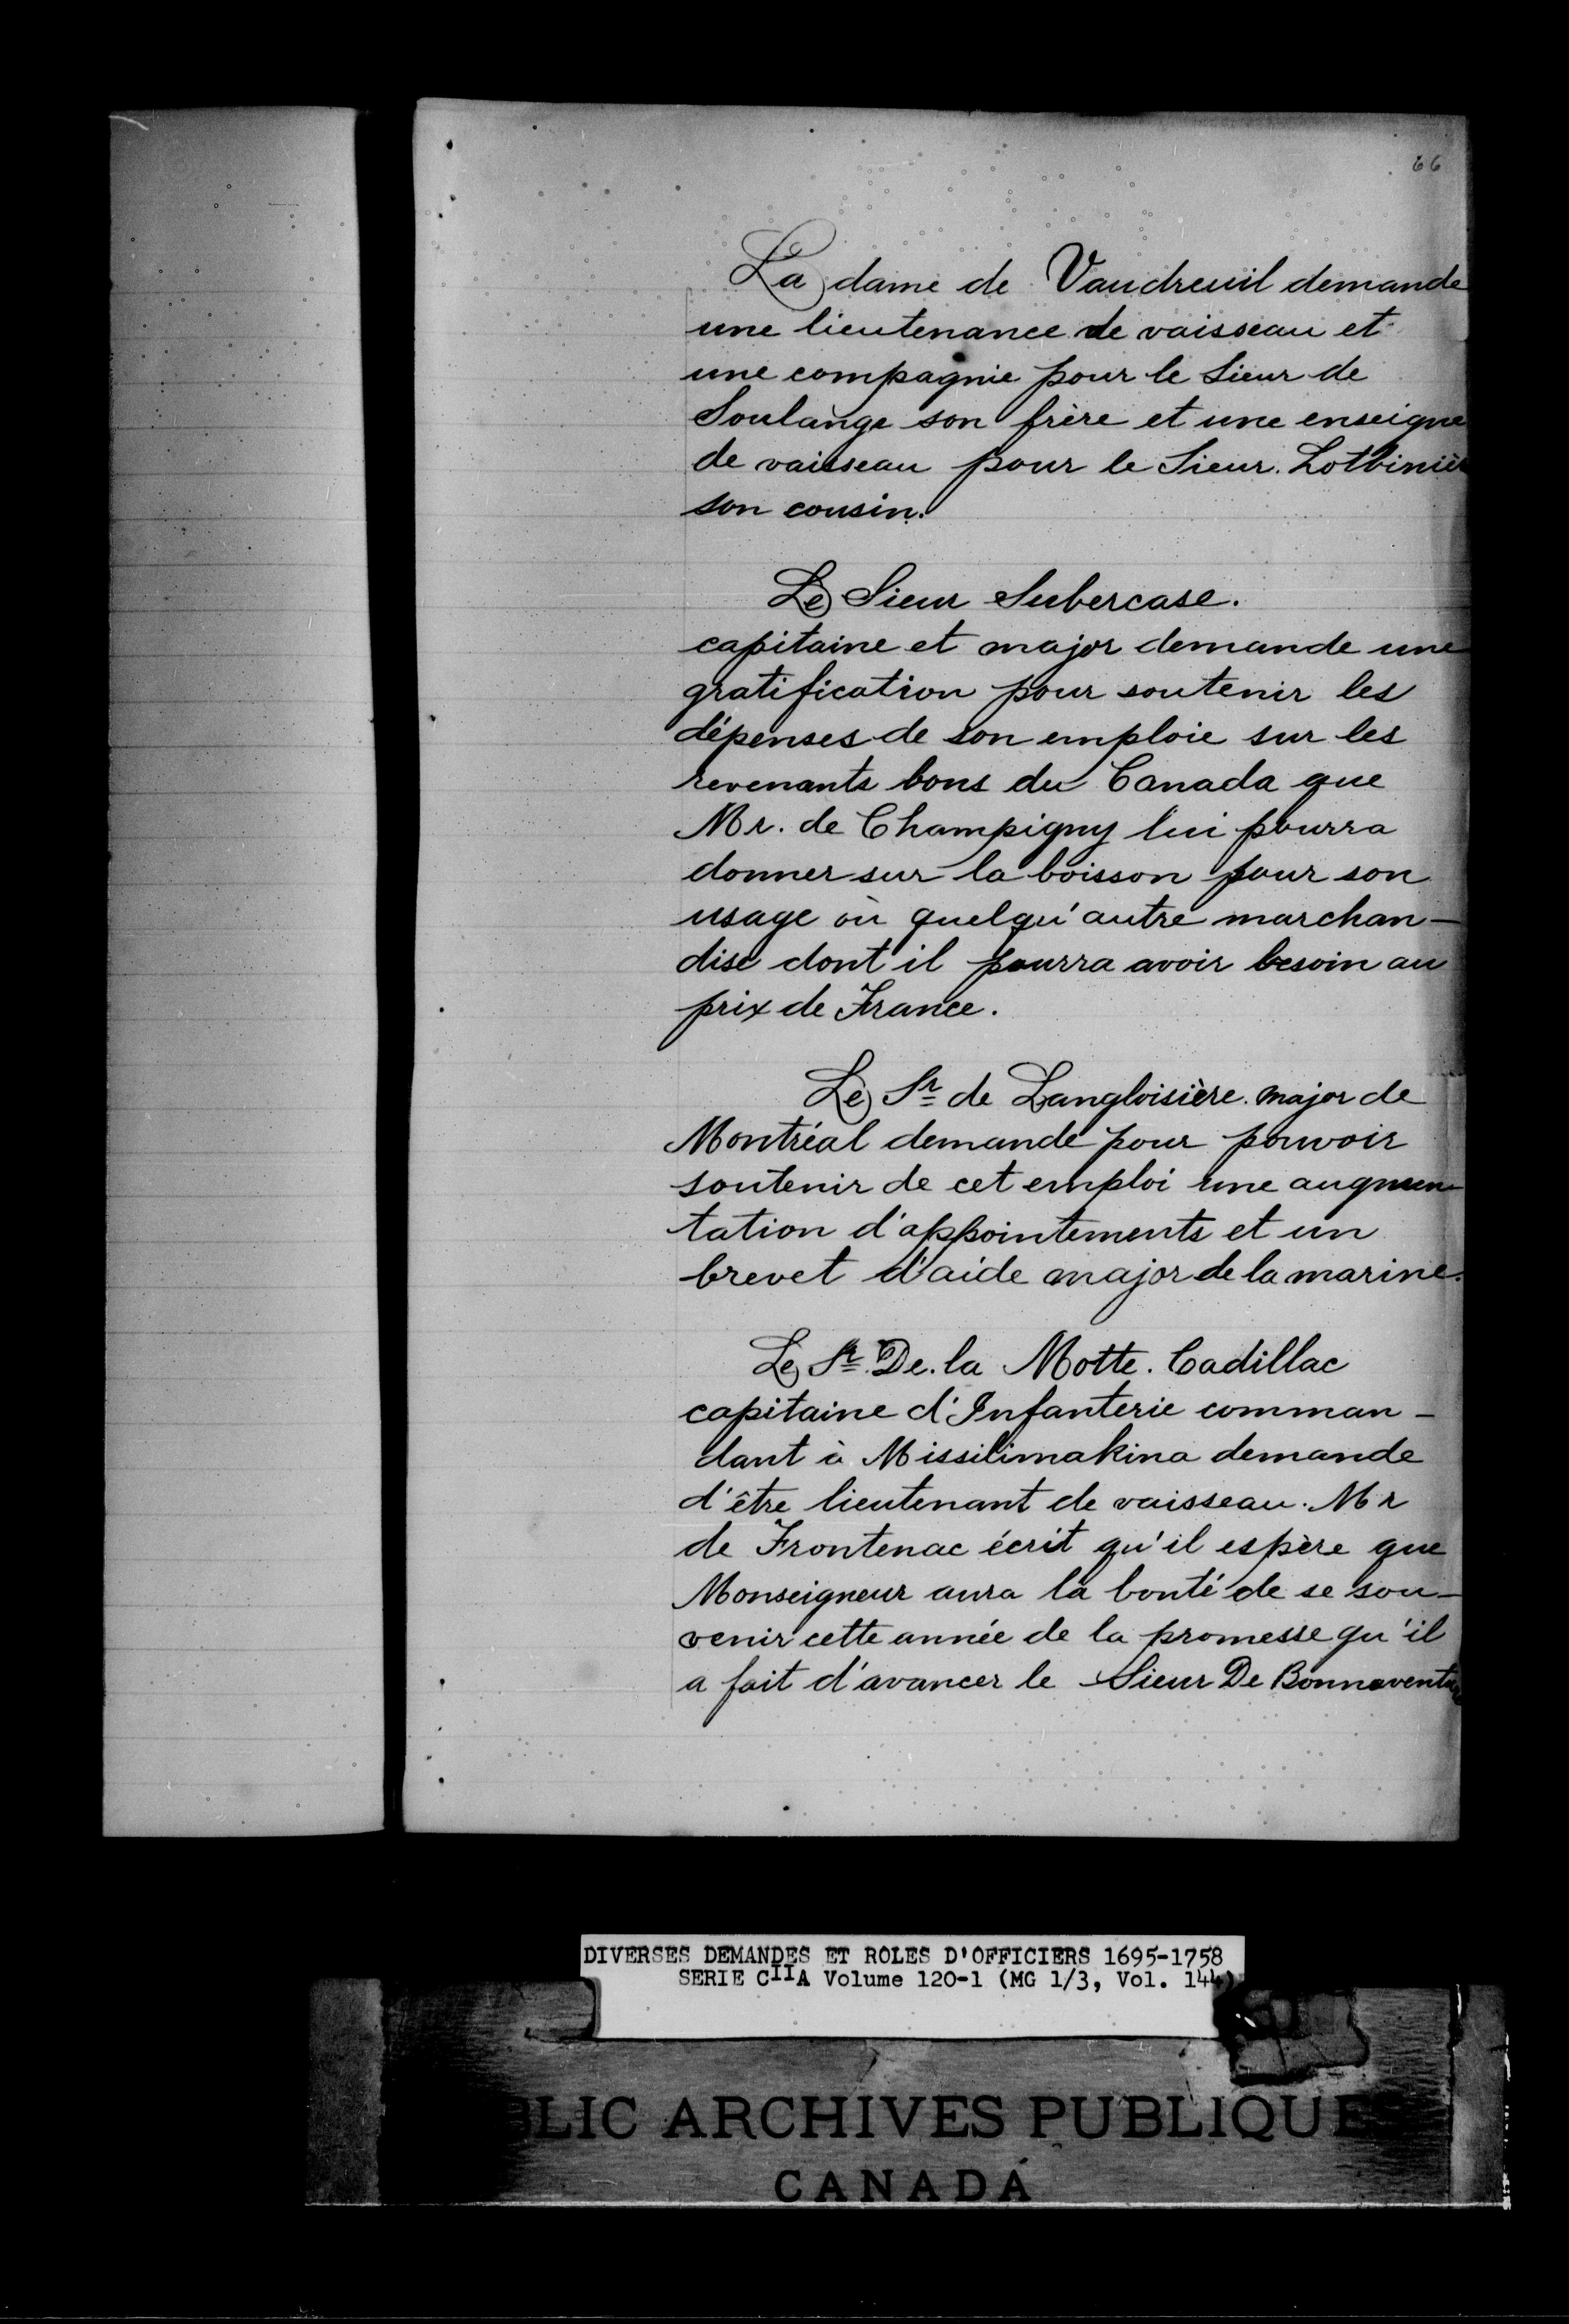 66
La dame de Vaudreuil demande
une lieutenance de vaisseau et
une compagnie pour le Sieur de
Soulange son frère et une enseigne
de vaisseau pour le Sieur. Lotbiniè
son cousin.
Le Sieur Subercase.
capitaine et major demande une
gratification pour soutenir les
dépenses de son emploie sur les
revenants bons du Canada que
Mr. de Champigny lui pourra
donner sur la boisson pour son
usage où quelqu'autre marchan-
dise dont il pourra avoir besoin au
prix de France.
Le Sr de Langloisière. major de
Montréal demande pour pouvoir
soutenir de cet emploi une augmen-
tation d'appointements et un
brevet d'aide major de la marine.
Le Sr. De. la Motte. Cadillac
capitaine d'Infanterie comman-
dant à Missilimakina demande
d'être lieutenant de vaisseau. Mr
de Frontenac écrit qu'il espère que
Monseigneur aura la bonté de se sou-
venir cette année de la promesse qu'il
a fait d'avancer le Sieur De Bonnaventu
DIVERSES DEMANDES ET ROLES D'OFFICIERS 1695-1758
SERIE CIIA Volume 120-1 (MG 1/3, Vol. 144)
BLIC ARCHIVES PUBLIQUE
CANADA